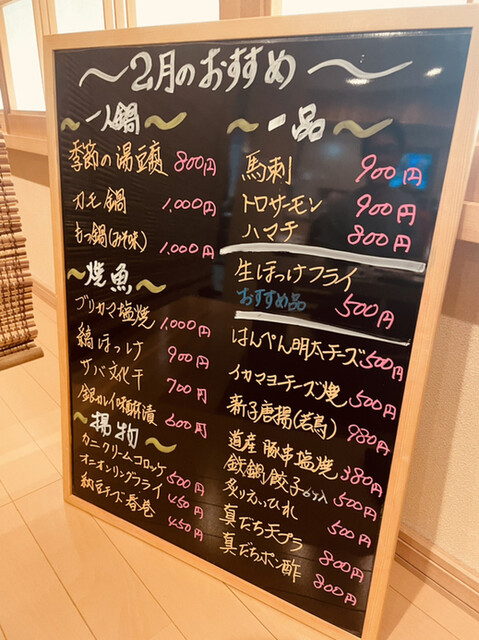 〜2月のおすすめ〜
〜一人鍋〜
季節の湯豆腐 800円
カモ鍋 1,000円
もつ鍋(みそ味) 1,000円
〜焼魚〜
ブリカマ塩焼 1,000円
縞ほっけ 900円
サバ文化干 700円
銀カレイ味醂漬 600円
〜揚物〜
カニクリームコロッケ 500円
オニオンリングフライ 450円
納豆チーズ春巻 450円
〜一品〜
馬刺 900円
トロサーモン 900円
ハマチ 800円
生ほっけフライ
おすすめ品 500円
はんぺん明太チーズ 500円
イカマヨチーズ焼 500円
新子唐揚(若鳥) 980円
道産豚串塩焼 380円
鉄鍋餃子6ヶ入 500円
炙りえいひれ 500円
真だち天プラ 800円
真だちポン酢 800円